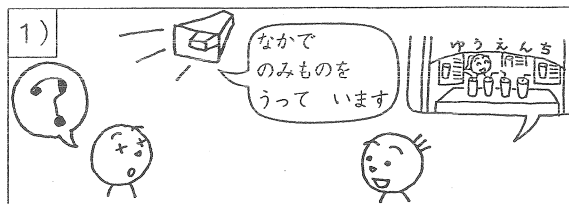 1)
?
なかで
のみものを
うって います
ゆうえんち